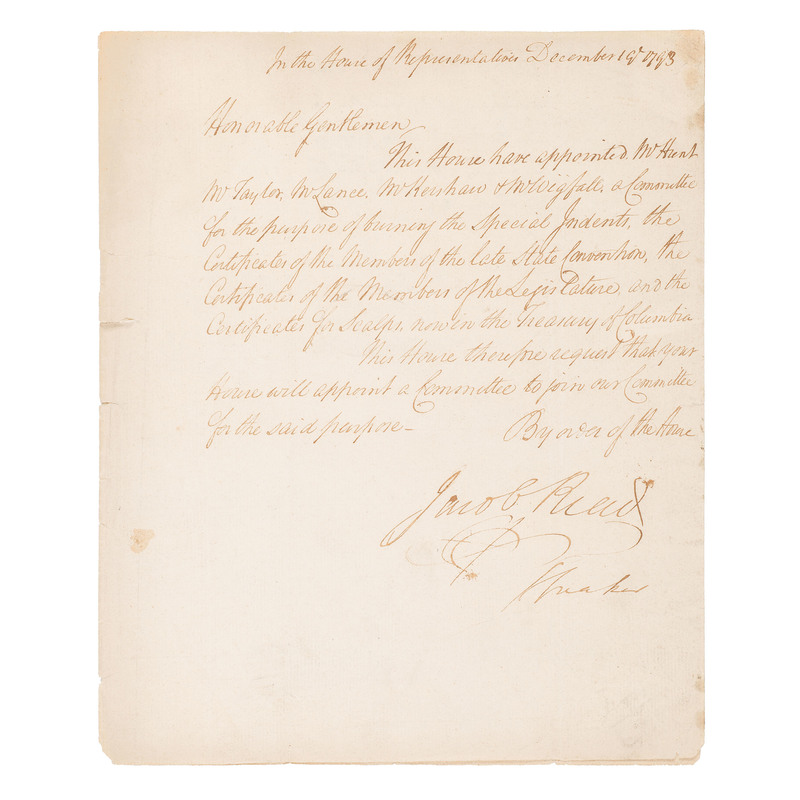 In the House of Representatives December 19th 1793
Honorable Gentlemen
This House have appointed Mr Hunt
Mr Taylor, Mr Lance, Mr Kershaw & Mr Wigfall, a Committee
for the purpose of burning the Special Indents, the
Certificates of the Members of the late State Convention, the
Certificates of the Members of the Legislature, and the
Certificates for Scalps, now in the Treasury of Columbia
This House therefore request that your
House will appoint a Committee to join our Committee
for the said purpose –
By order of the House
Jacob Read
Speaker